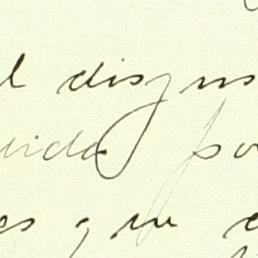 l disgus
uida po
es que e